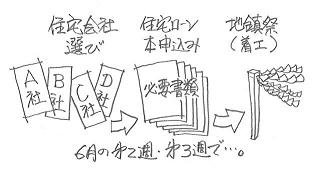 住宅会社
選び
A社
B社
C社
D社
住宅ローン
本申込み
必要書類
地鎮祭
(着工)
6月の第2週・第3週で…。